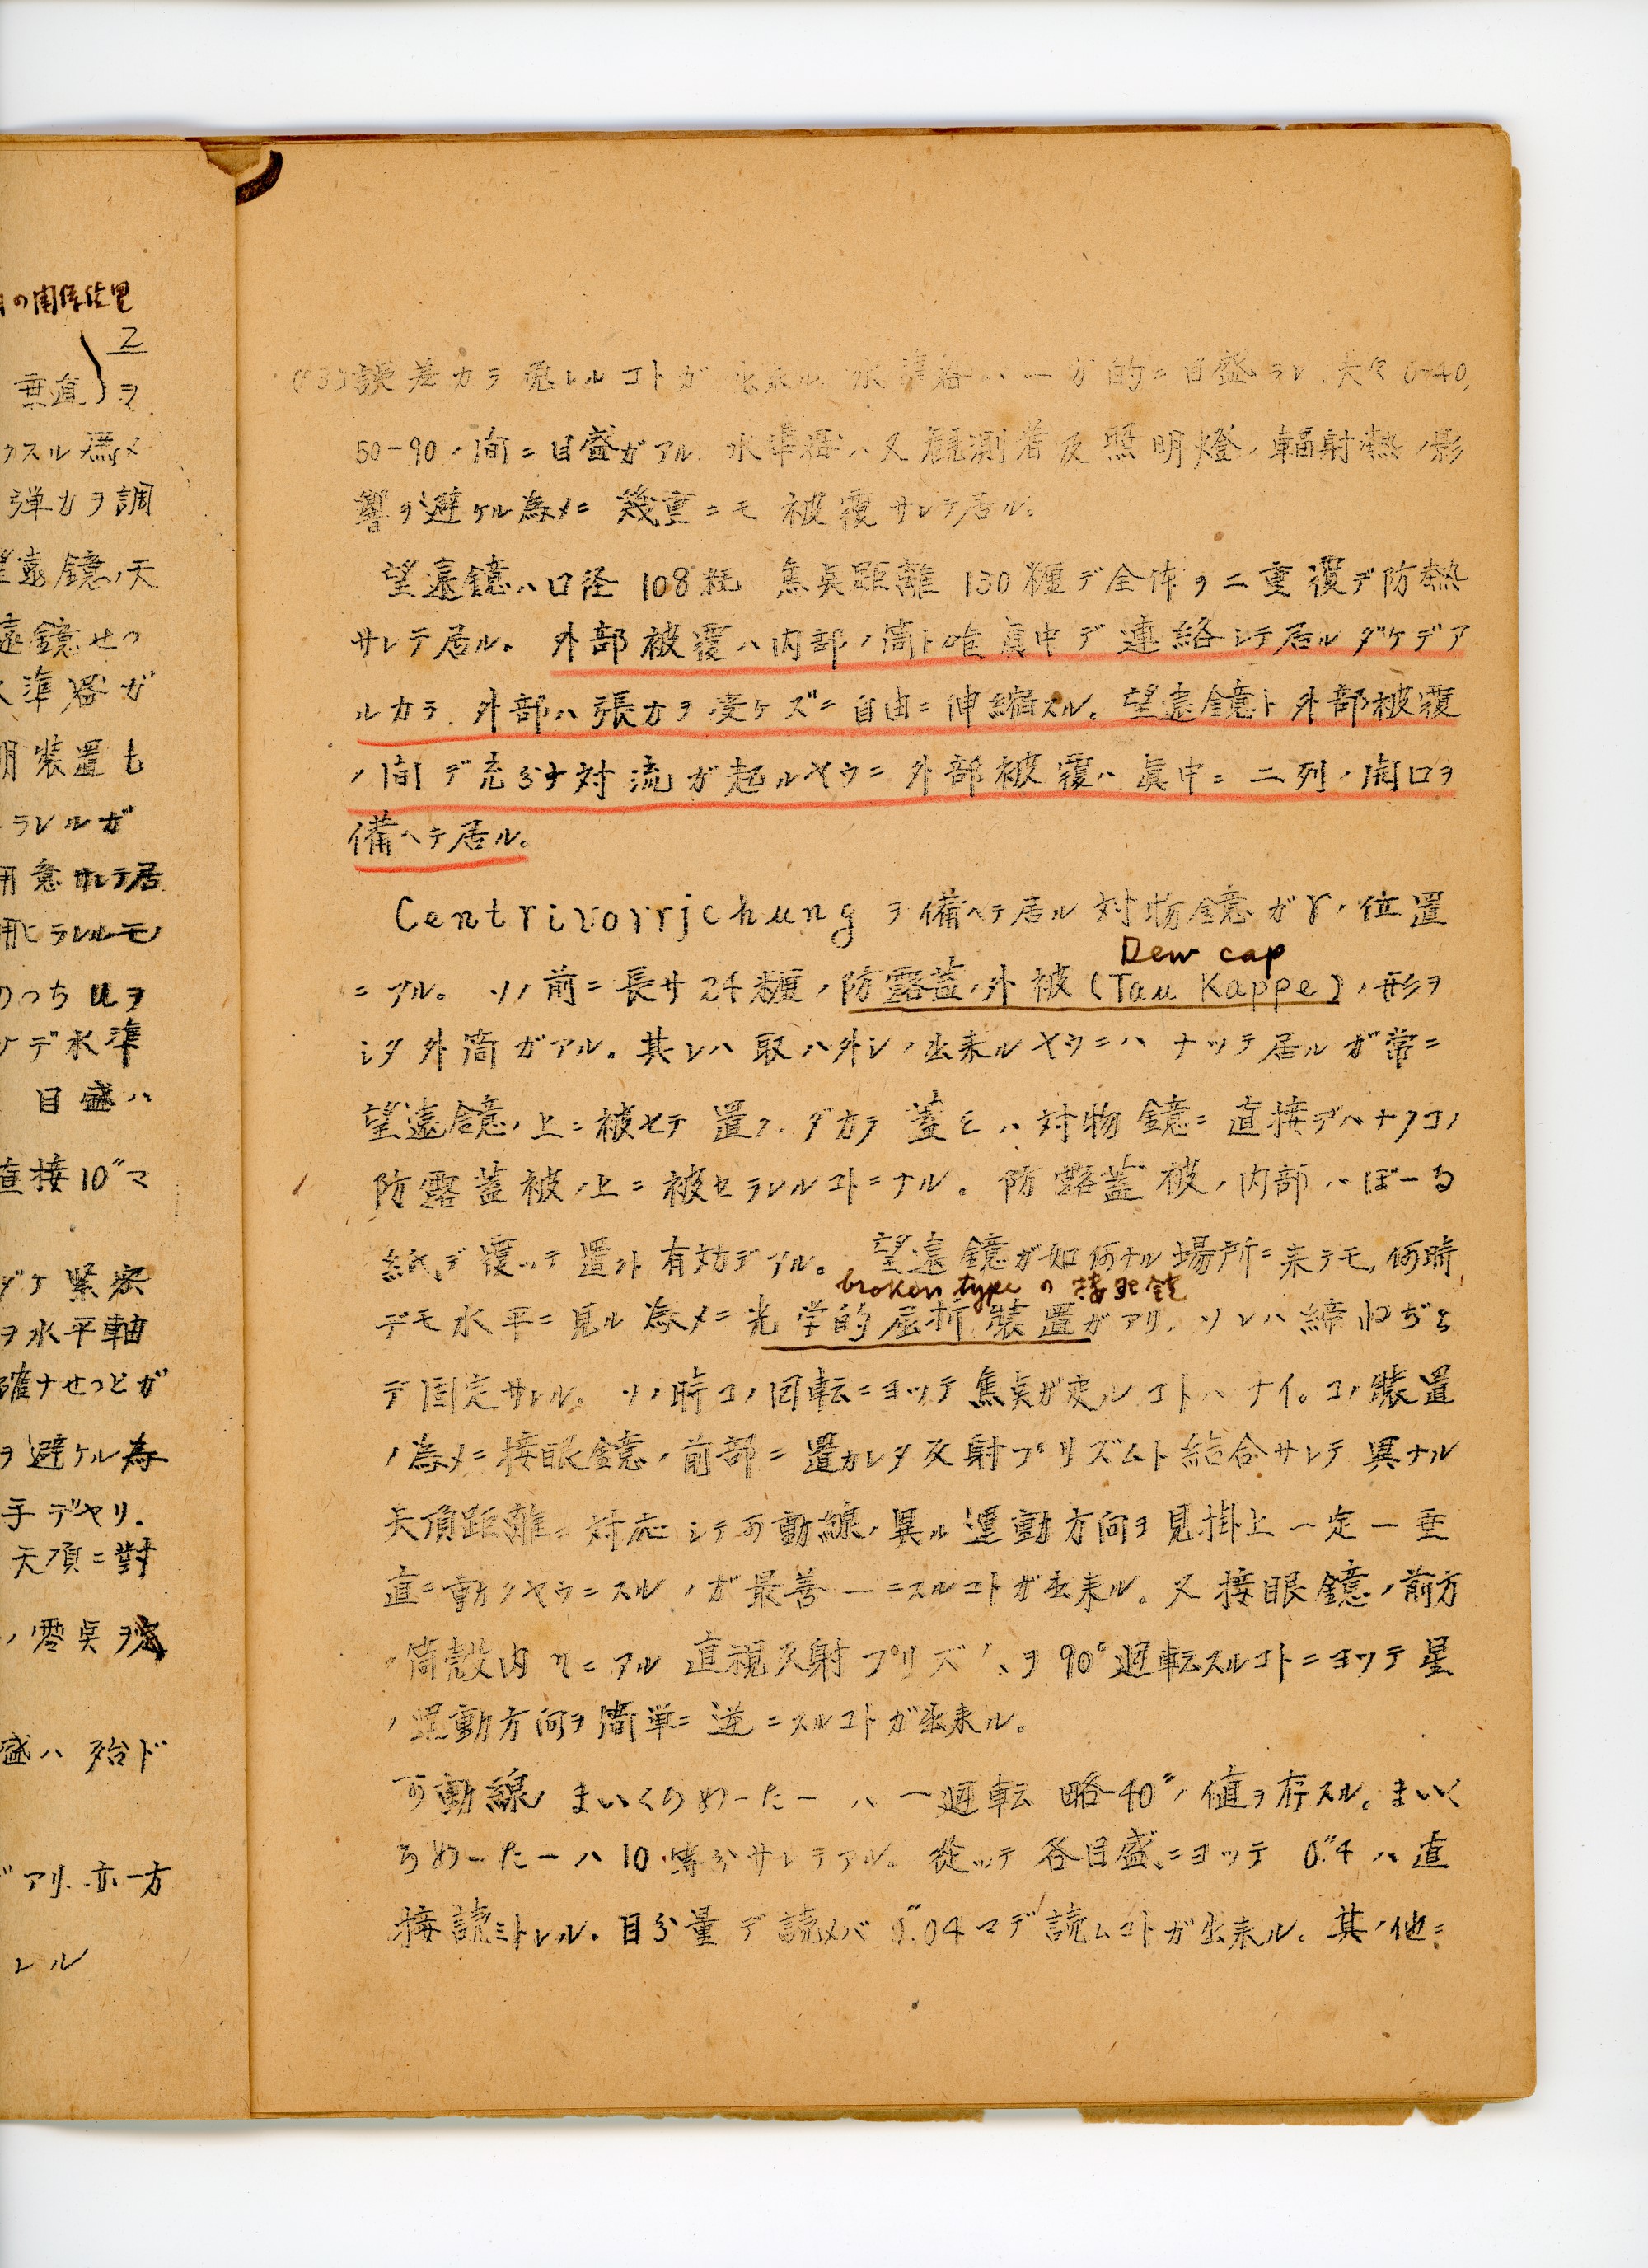 の関係位置
Z
垂直 ヲ
クスル為メ
弾力ヲ調
望遠鏡ノ天
遠鏡せつ
水準器ガ
明装置も
ラレルガ
用意サレテ居
用ヒラレルモノ
のっち uヲ
ケデ水準
目盛ハ
直接10″マ
ダケ緊密
ヲ水平軸
確ナせつとガ
ヲ避ケル為
手デヤリ.
天頂ニ對
ノ零点ヲ
盛ハ殆ド
アリ.亦一方
レル
(13)誤差カラ免レルコトガ出来ル.水準器ハ一分的ニ目盛ラレ.夫々0-40,
50-90ノ間ニ目盛ガアル.水準器ハ又観測者及照明燈ノ輻射熱ノ影
響ヲ避ケル為メニ幾重ニモ被覆サレテ居ル.
望遠鏡ハ口径108粍 焦点距離130糎デ全体ヲ二重覆デ防熱
サレテ居ル。外部被覆ハ内部ノ筒ト唯真中デ連絡シテ居ルダケデア
ルカラ.外部ハ張力ヲ受ケズニ自由ニ伸縮スル。望遠鏡ト外部被覆
ノ間デ充分ナ対流ガ起ルヤウニ外部被覆ハ眞中ニ二列ノ開口ヲ
備ヘテ居ル。
Centrivorrjchungヲ備ヘテ居ル対物鏡ガrノ位置
Dew cap
ニアル。ソノ前ニ長サ24糎ノ防露蓋ノ外被(Tau Kappe)ノ形ヲ
シタ外筒ガアル。其レハ取ハ外シノ出来ルヤウニハナッテ居ルガ常ニ
望遠鏡ノ上ニ被セテ置ク.ダカラ蓋εハ対物鏡ニ直接デハナクコノ
防露蓋被ノ上ニ被セラレルコトニナル。防露蓋被ノ内部ハぼーる
紙デ覆ッテ置クト有効デアル。望遠鏡ガ如何ナル場所ニ来テモ,何時
broken typeの接眼鏡
デモ水平ニ見ル為メニ光学的屈折装置ガアリ.ソレハ締ねぢδ
デ固定サレル.ソノ時コノ回転ニヨッテ焦点ガ変ルコトハナイ。コノ装置
ノ為メニ接眼鏡ノ前部ニ置カレタ反射プリズムト結合サレテ異ナル
天頂距離ニ対応シテ可動線ノ異ル運動方向ヲ見掛上一定ー垂
直ニ動クヤウニスルノガ最善ーニスルコトガ出来ル。又接眼鏡ノ前方
ノ筒殻内ηニアル直視反射プリズムヲ90°廻転スルコトニヨッテ星
ノ運動方向ヲ簡単ニ逆ニスルコトガ出来ル。
可動線ノまいくろめーたーハ一廻転略40″ノ値ヲ存スル。まいく
ろめーたーハ10等分サレテアル。從ッテ各目盛ニヨッテ0.″4ハ直
接読ミトレル.目分量デ読メバ0.″04マデ読ムコトガ出来ル。其ノ他ニ